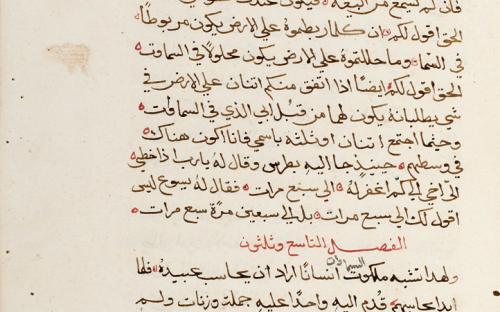 فان لم يسمع من البيعة فيكون عندك
الحق اقول لكم ان كلما ربطموه علي الارض يكون مربوطًا
في السما وما حللتموه علي الارض يكون محلولًا في السماوت
الحق اقول لكم ايضًا اذا اتفق منكم اتنان علي الارض في
شي يطلبانه يكون لهما من قبل ابي الذي في السماوات
وحتما اجتمع اتنان او ثلثة باسمي فانا اكون هناك
في وسطهم حينيذ جا اليه بطرس وقال له يا رب اذا خطي
الي اخي الي كم اغفر له الي سبع مرات فقال له يسوع ليس
اقول لك الي سبع مرات بل الي سبعين مرة سبع مرات
الفصل التاسع وثلثون
ولهدا تشبه ملكوت السماوات انسانًا اراد ان يحاسب عبيده فلما
ابدا يحاسبهم قدم اليه واحدًا عليه جملة وزنات ولم